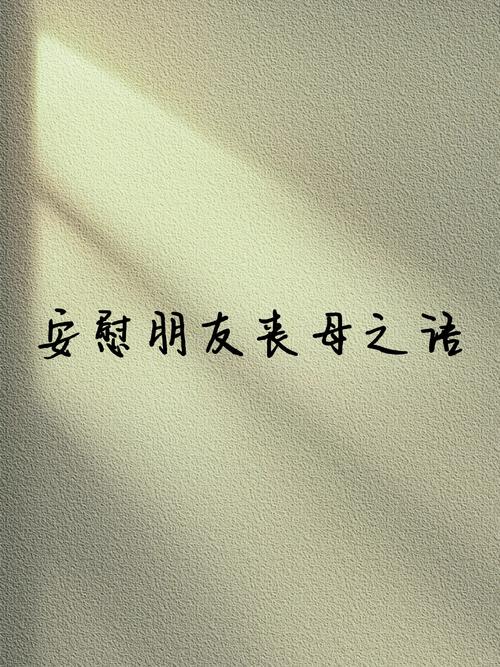 安慰朋友丧母之语